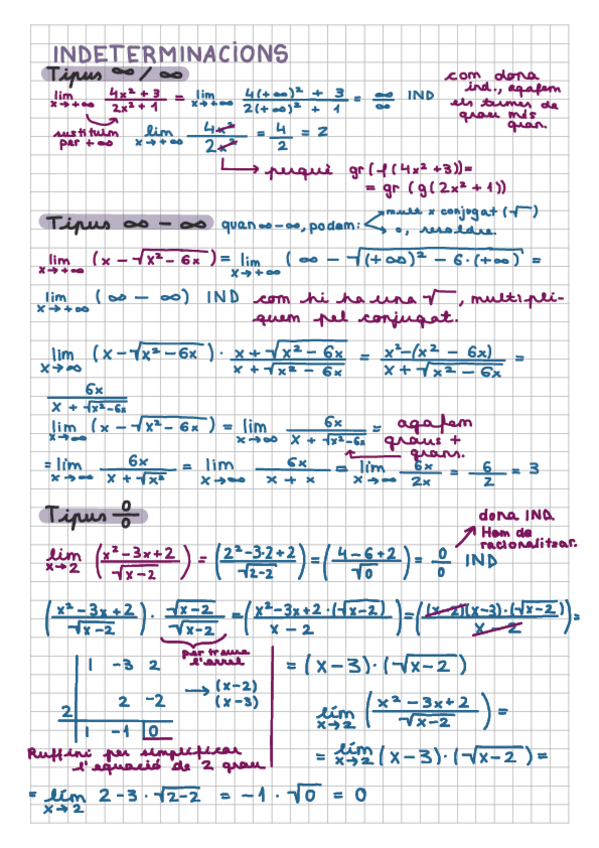 INDETERMINACIONS
Tipus ∞/∞
lim x→+∞ (4x² + 3)/(2x² + 1) = lim x→+∞ (4(+∞)² + 3)/(2(+∞)² + 1) = ∞/∞ IND
com dona ind., agafem els termes de grau més gran.
substituïm per +∞
lim x→+∞ 4x²/2x² = 4/2 = 2
perquè gr(f(4x²+3)) =
= gr (g(2x²+1))
Tipus ∞ - ∞ quan ∞-∞, podem:
mult x conjugat (√ )
o, resoldre.
lim x→+∞ (x - √x² - 6x) = lim x→+∞ (∞ - √(+∞)² - 6·(+∞)) =
lim x→+∞ (∞ - ∞) IND com hi ha una √ , multipli-
quem pel conjugat.
lim x→∞ (x-√x²-6x) · (x + √x² - 6x)/(x + √x² - 6x) = (x²-(x² - 6x))/(x + √x² - 6x) =
6x/(x + √x²-6x)
lim x→∞ (x - √x² - 6x) = lim x→∞ 6x/(x + √x²-6x) =
agafem graus + grans.
= lim x→∞ 6x/(x + √x²) = lim x→∞ 6x/(x + x) = lim x→∞ 6x/2x = 6/2 = 3
Tipus 0/0
dona IND.
Hem de racionalitzar.
lim x→2 ((x²-3x+2)/√x-2) = ((2²-3·2+2)/√2-2) = ((4-6+2)/√0) = 0/0 IND
((x²-3x+2)/√x-2) · √x-2/√x-2 = ((x²-3x+2·(√x-2))/(x-2)) = (((x-2)(x-3)·(√x-2))/(x-2)) =
per treure l'arrel
1 -3 2
2 2 -2
1 -1 0
→ (x-2)
(x-3)
Ruffini per simplificar
l'equació de 2 grau
= (x-3)·(√x-2)
lim x→2 ((x² - 3x+2)/√x-2) =
= lim x→2 (x-3)·(√x-2) =
= lim x→2 2-3·√2-2 = -1·√0 = 0